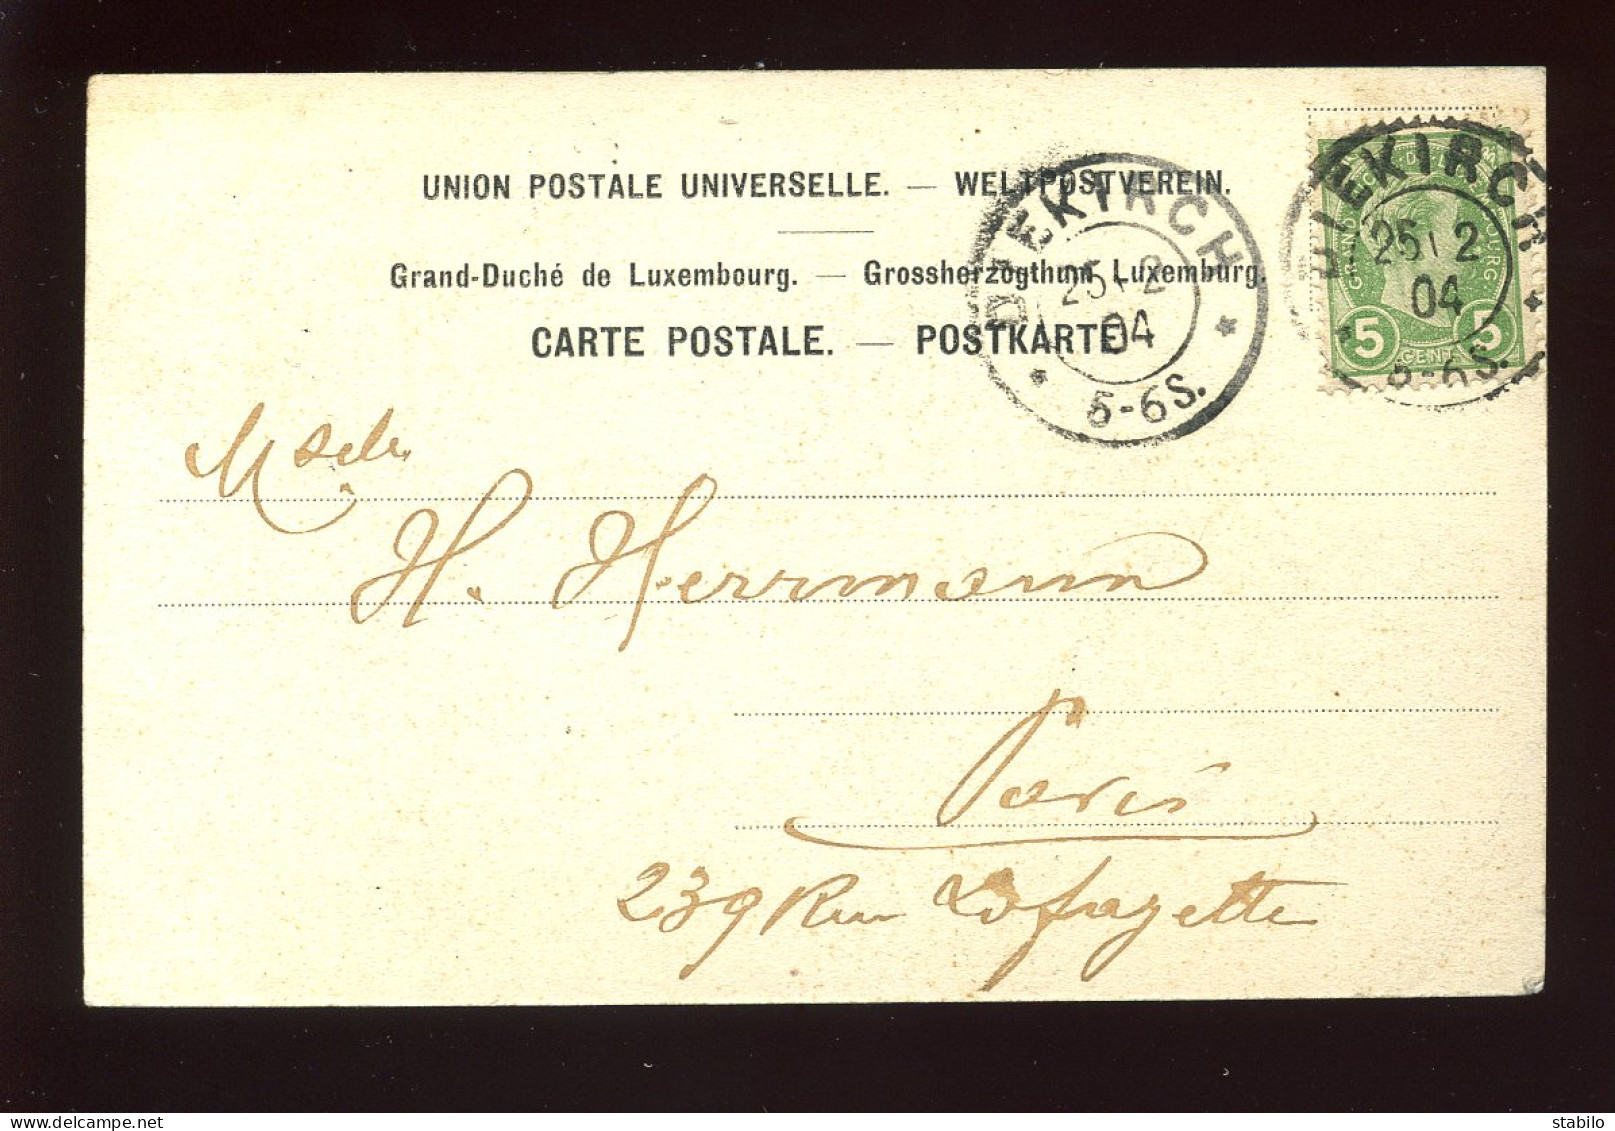 UNION POSTALE UNIVERSELLE. — WELTPOSTVEREIN.
Grand-Duché de Luxembourg. — Grossherzogthum Luxemburg.
CARTE POSTALE. — POSTKARTE
DIEKIRCH
25 2
04
5-6S.
DIEKIRCH
25 2
04
5-6S.
5 CENT. 5
H. Herrmann
Paris
239 Rue Lafayette
stabilo